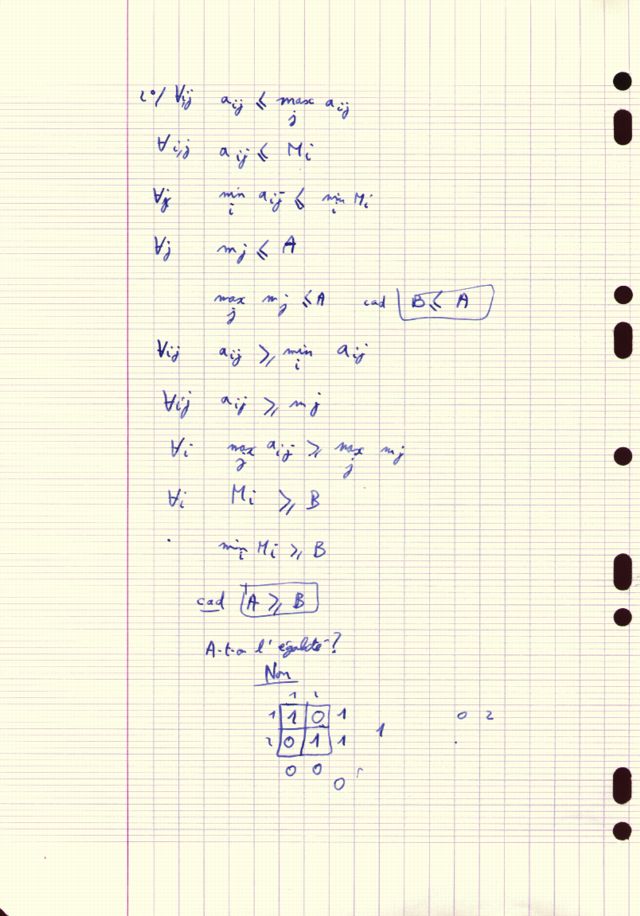 2°/ ∀i,j  a_ij ⩽ max_j a_ij
∀i,j  a_ij ⩽ M_i
∀j  min_i a_ij ⩽ min_i M_i
∀j  m_j ⩽ A
max_j m_j ⩽ A  cad  B ⩽ A
∀ij  a_ij ⩾ min_i a_ij
∀ij  a_ij ⩾ m_j
∀i  max_j a_ij ⩾ max_j m_j
∀i  M_i ⩾ B
min_i M_i ⩾ B
cad  A ⩾ B
A-t-on l'égalité ?
Non
1 2
1 1 0 1
2 0 1 1 1
0 0
0
0 2